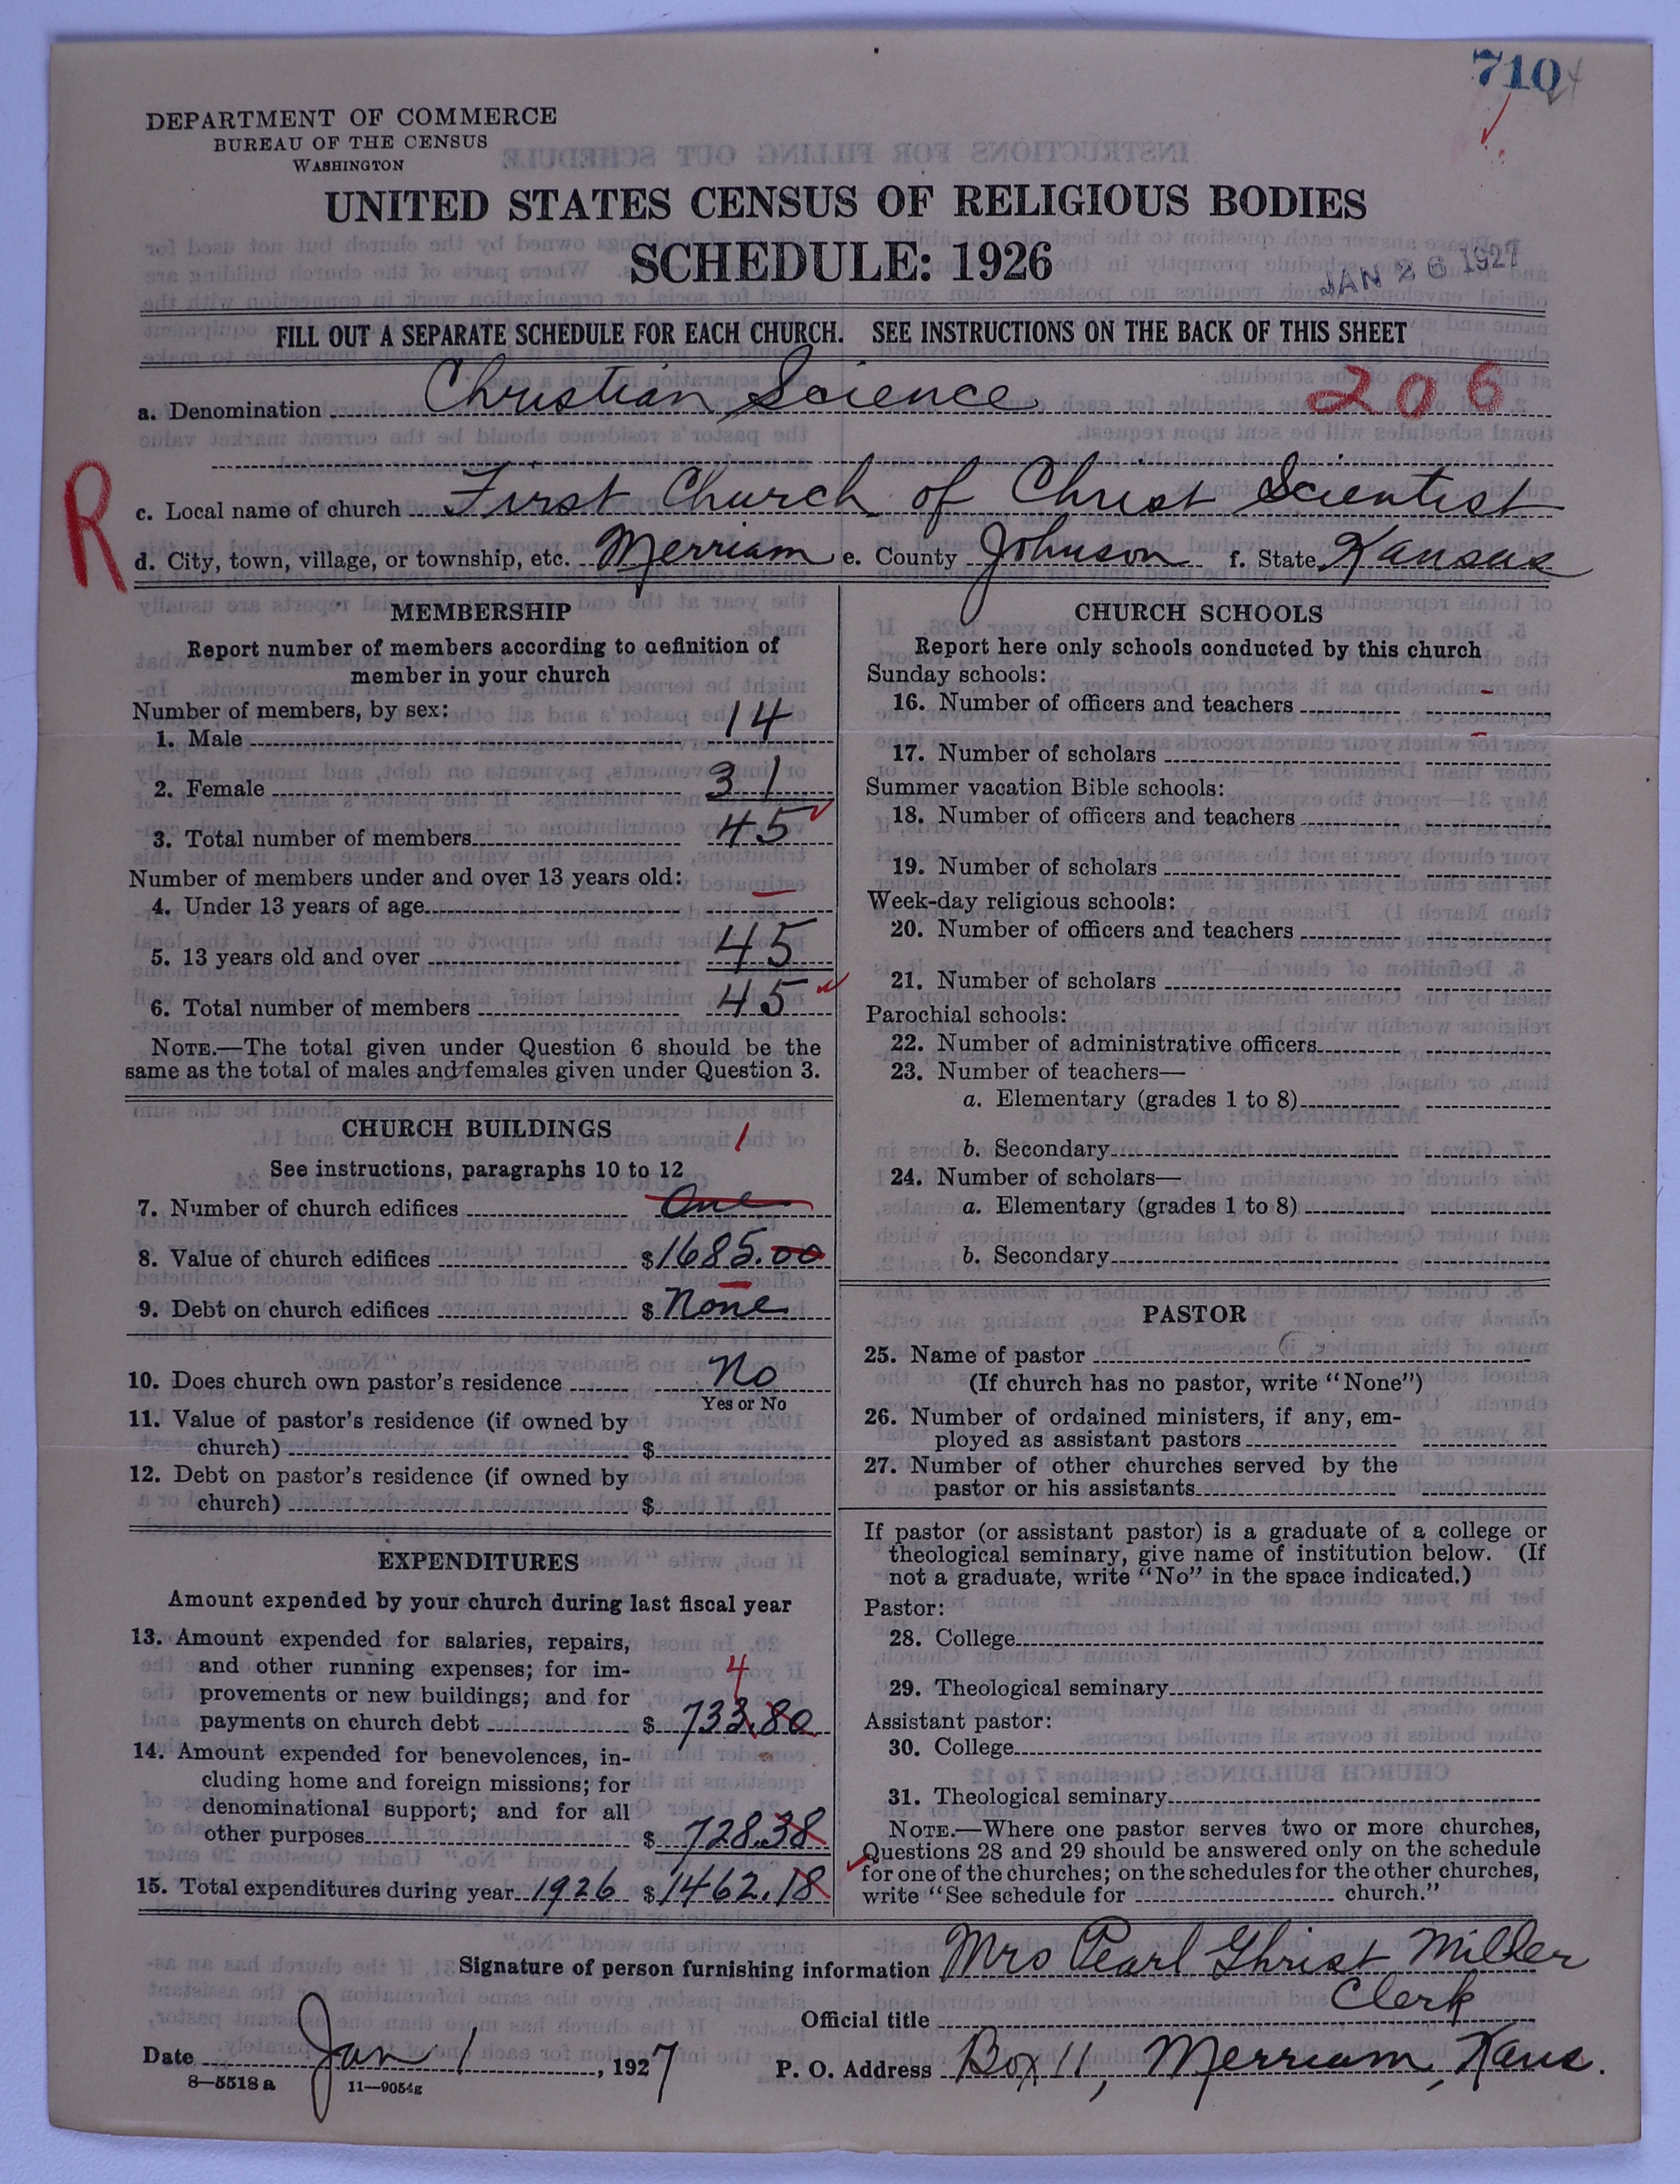 710
DEPARTMENT OF COMMERCE
BUREAU OF THE CENSUS
WASHINGTON
UNITED STATES CENSUS OF RELIGIOUS BODIES
SCHEDULE: 1926
JAN 26 1927
FILL OUT A SEPARATE SCHEDULE FOR EACH CHURCH. SEE INSTRUCTIONS ON THE BACK OF THIS SHEET
a. Denomination Christian Science 206
R
c. Local name of church First Church of Christ Scientist
d. City, town, village, or township, etc. Merriam e. County Johnson f. State Kansas
MEMBERSHIP
Report number of members according to definition of
member in your church
Number of members, by sex:
1. Male 14
2. Female 31
3. Total number of members 45
Number of members under and over 13 years old:
4. Under 13 years of age —
5. 13 years old and over 45
6. Total number of members 45
NOTE.—The total given under Question 6 should be the
same as the total of males and females given under Question 3.
CHURCH BUILDINGS
See instructions, paragraphs 10 to 12
1
7. Number of church edifices One
8. Value of church edifices $1685.00
9. Debt on church edifices $ None
10. Does church own pastor's residence No
Yes or No
11. Value of pastor's residence (if owned by
church) $
12. Debt on pastor's residence (if owned by
church) $
EXPENDITURES
Amount expended by your church during last fiscal year
13. Amount expended for salaries, repairs,
and other running expenses; for im-
4
provements or new buildings; and for
payments on church debt $ 733.80
14. Amount expended for benevolences, in-
cluding home and foreign missions; for
denominational support; and for all
other purposes $ 728.38
15. Total expenditures during year 1926 $1462.18
CHURCH SCHOOLS
Report here only schools conducted by this church
Sunday schools:
16. Number of officers and teachers -
17. Number of scholars -
Summer vacation Bible schools:
18. Number of officers and teachers
19. Number of scholars
Week-day religious schools:
20. Number of officers and teachers
21. Number of scholars
Parochial schools:
22. Number of administrative officers
23. Number of teachers—
a. Elementary (grades 1 to 8)
b. Secondary
24. Number of scholars—
a. Elementary (grades 1 to 8)
b. Secondary
PASTOR
25. Name of pastor
(If church has no pastor, write "None")
26. Number of ordained ministers, if any, em-
ployed as assistant pastors
27. Number of other churches served by the
pastor or his assistants
If pastor (or assistant pastor) is a graduate of a college or
theological seminary, give name of institution below. (If
not a graduate, write "No" in the space indicated.)
Pastor:
28. College
29. Theological seminary
Assistant pastor:
30. College
31. Theological seminary
NOTE.—Where one pastor serves two or more churches,
Questions 28 and 29 should be answered only on the schedule
for one of the churches; on the schedules for the other churches,
write "See schedule for church."
Signature of person furnishing information Mrs Pearl Ghrist Miller
Official title Clerk
Date Jan 1, 1927 P. O. Address Box 11, Merriam, Kans.
8—5518 a 11—9054g